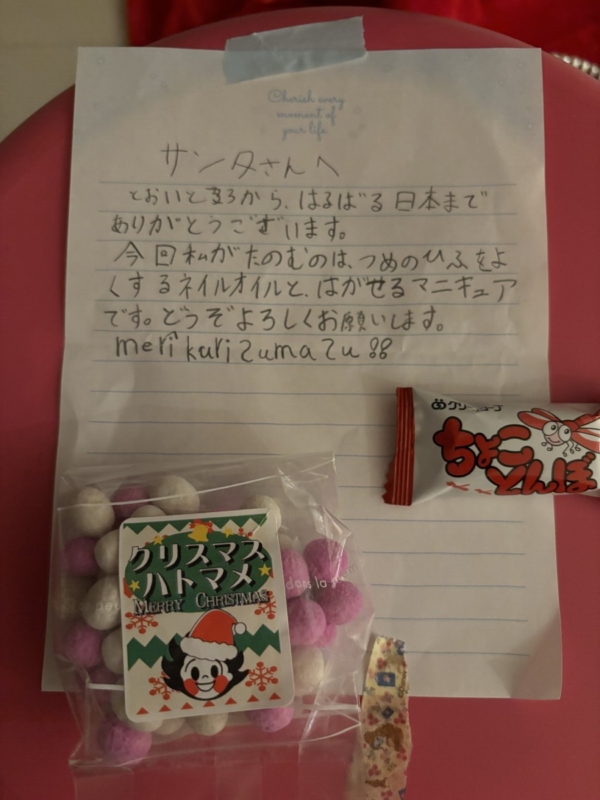 Cherish every
moment of
your life
サンタさんへ
とおいところから、はるばる日本まで
ありがとうございます。
今回私がたのむのは、つめのひふをよ
くするネイルオイルと、はがせるマニキュア
です。どうぞよろしくお願いします。
meri kuri zuma zu
ちょこ
とんぼ
クリスマス
ハトマメ
MERRY CHRISTMAS